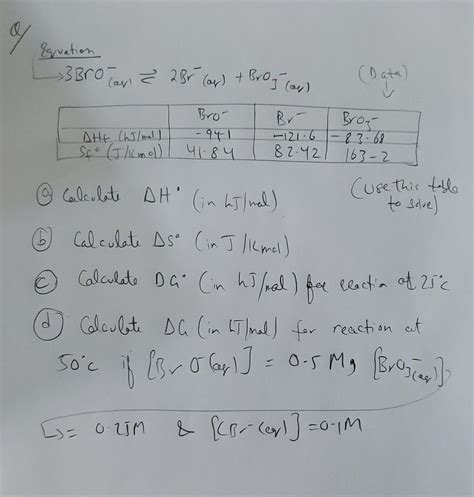 Q/
Equation
↳ 3BrO⁻(aq) ⇌ 2Br⁻(aq) + BrO₃⁻(aq)
(Data)
BrO⁻ Br⁻ BrO₃⁻
ΔHf (kJ/mol) -94.1 -121.6 -83.68
Sf° (J/Kmol) 41.84 82.42 163-2
(use this table
to solve)
(a) Calculate ΔH° (in kJ/mol)
(b) Calculate ΔS° (in J/Kmol)
(c) Calculate ΔG° (in kJ/mol) for reaction at 25°C
(d) Calculate ΔG (in kJ/mol) for reaction at
50°C if [BrO⁻(aq)] = 0.5 M, [BrO₃⁻(aq)]
↳ = 0.25M & [Br⁻(aq)] = 0.1M